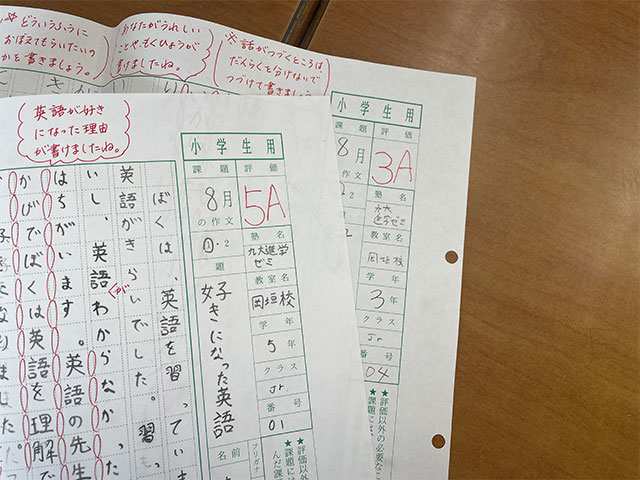 ※どういうふうに
おぼえてもらいたいの
かを書きましょう。
あなたがうれしい
ことや、もくひょうが
書けましたね。
※話がつづくところは
だんらくを分けないで
つづけて書きましょう
英語が好き
になった理由
が書けましたね。
小学生用
課題
評価
8月
の作文
5A
①・2
塾名
九大進学
ゼミ
教室名
岡垣校
学年
5年
クラス
Jr
番号
01
題
好きになった英語
名前
フリガナ
★評価以外
★課題には
んだ課題
ぼくは、英語を習ってい
英語がきらいでした。習
いし、英語わからなかった
が
はちがいます。英語の先生
かびでぼくは英語を理解で
小学生用
課題
評価
8月
の作文
3A
2
塾名
九大
進学ゼミ
教室名
岡垣校
学年
3年
クラス
Jr
番号
04
★評価以外の必要なこ
★課題には、